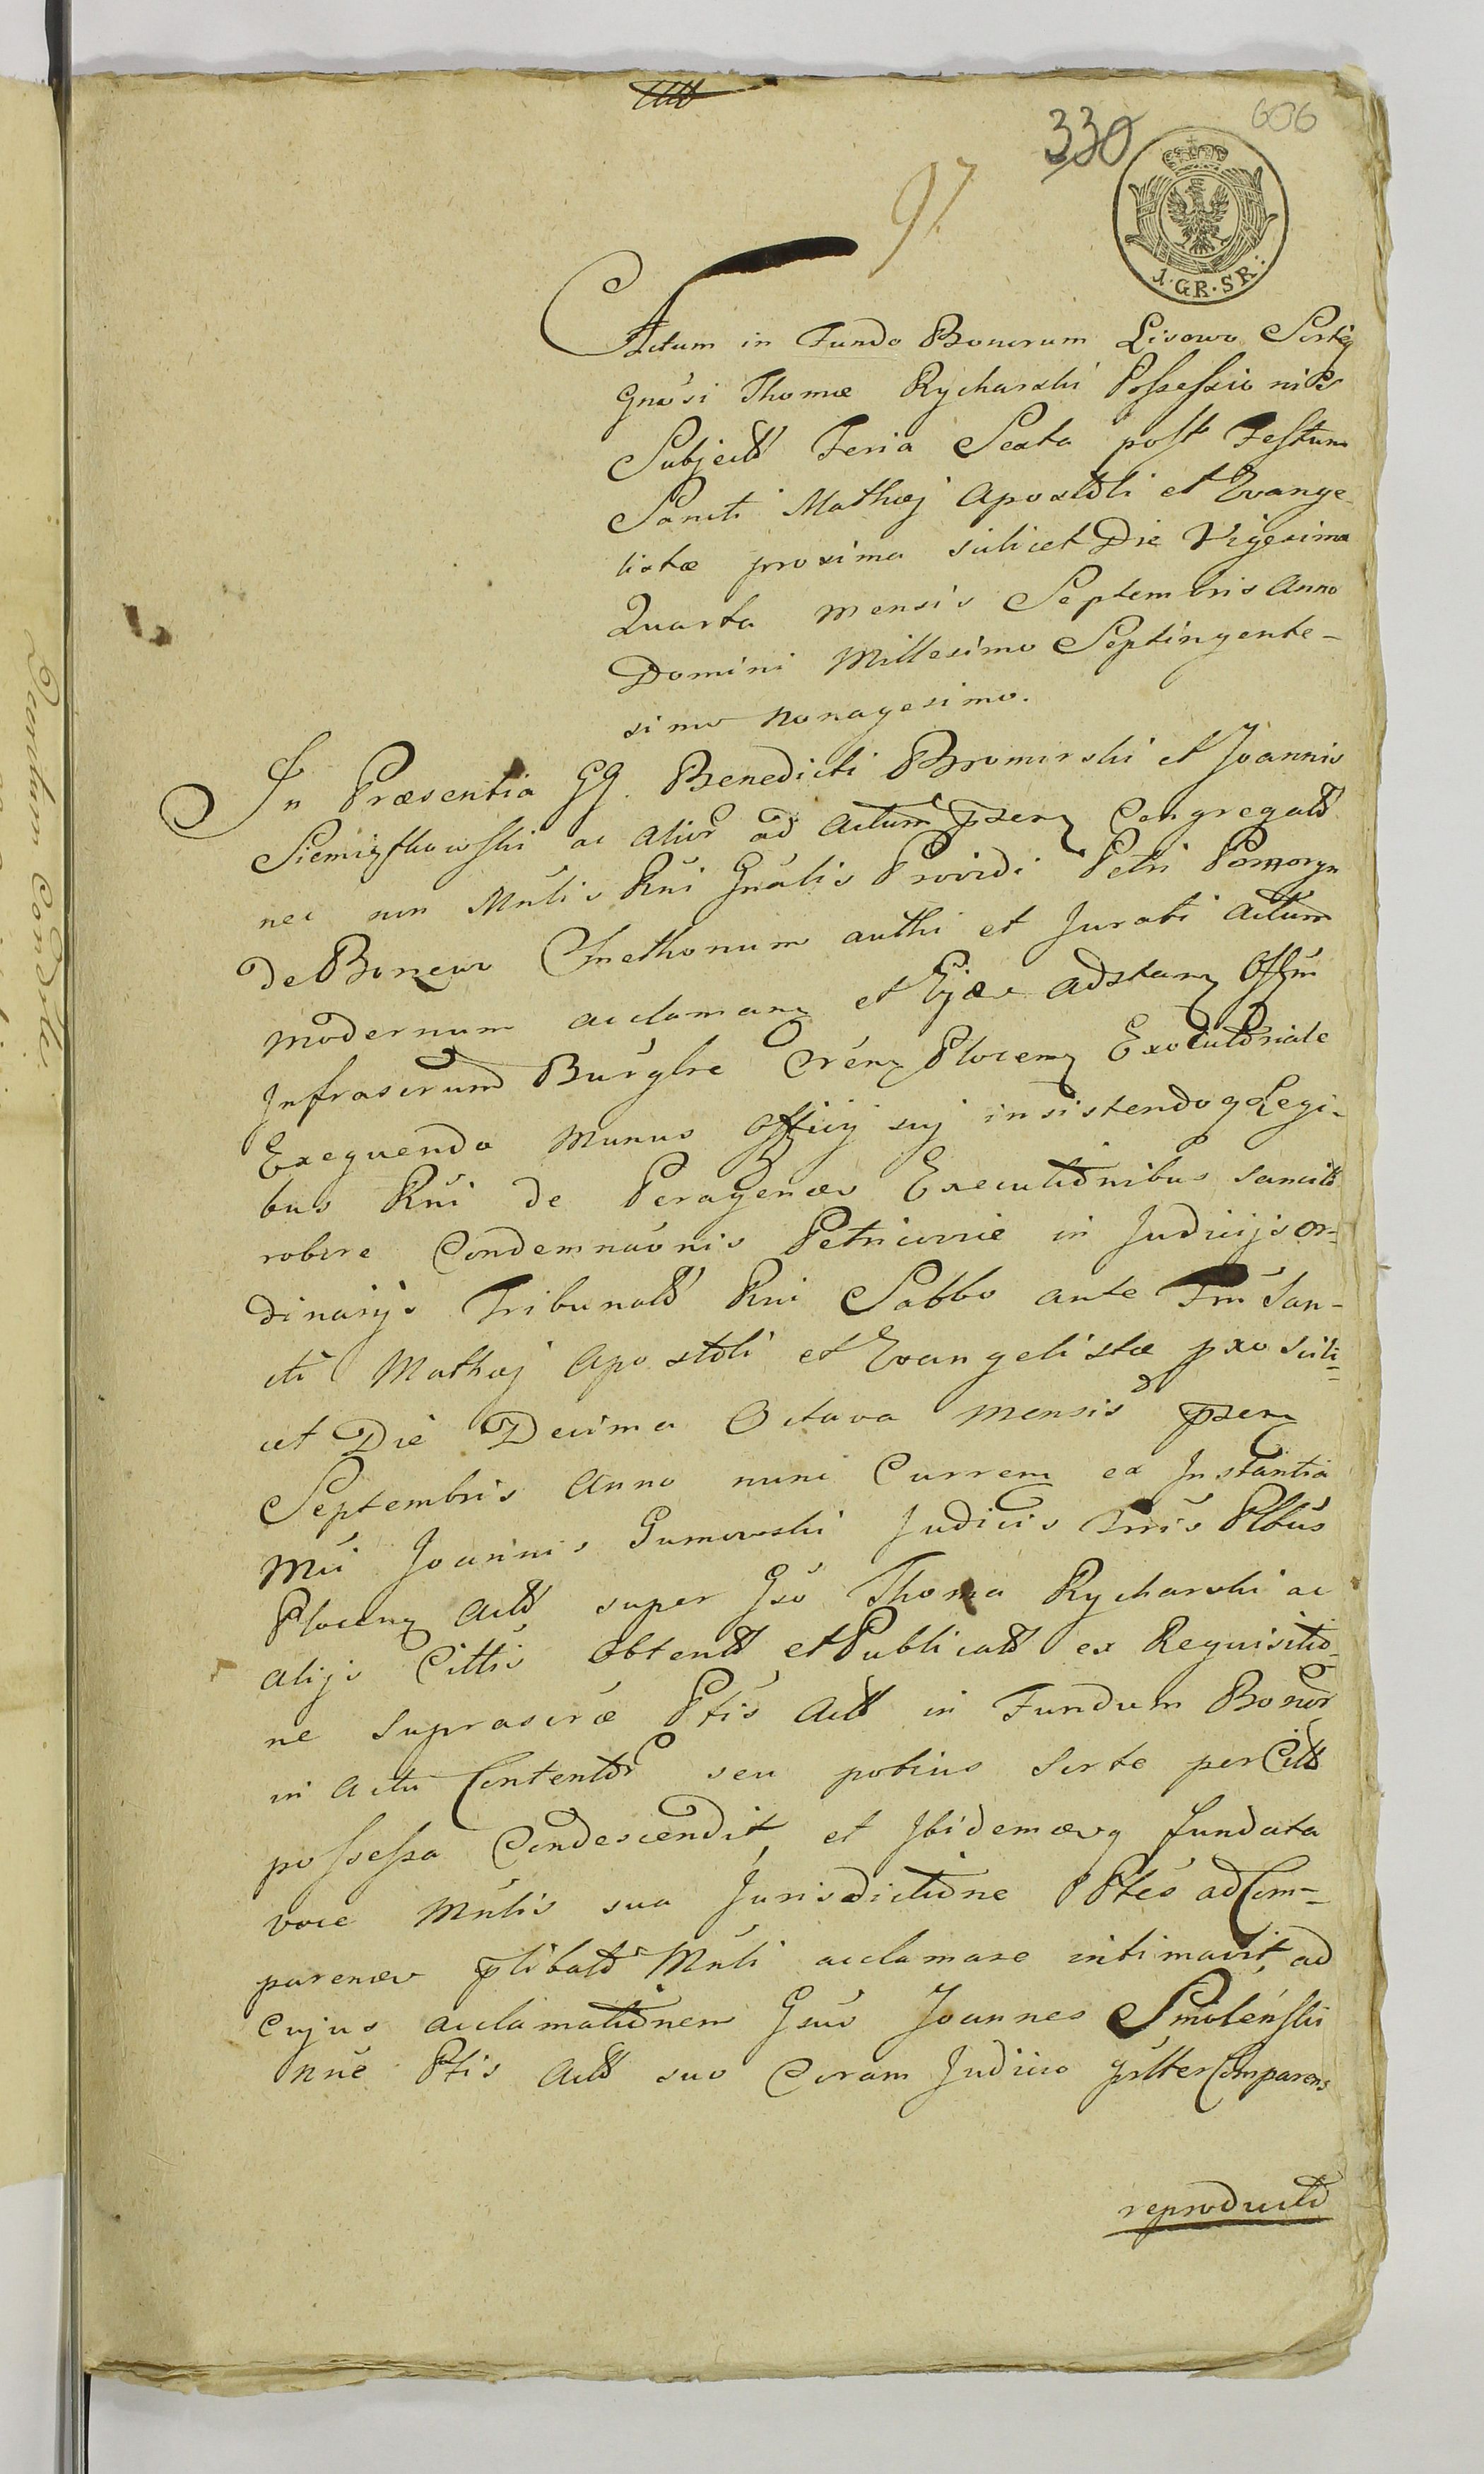 330
606
97
1·GR·SR:
Actum in Fundo Bonorum Lisowo Sortis
Gnosi Thomæ Rycharski Possessionis
Subject Feria Sexta post Festum
Sancti Mathæj Apostoli et Evange
listæ proxima scilicet Die Vigesima
Quarta Mensis Septembris Anno
Domini Millesimo Septingente-
simo Nonagesimo.
In Præsentia GG. Benedicti Bromirski et Joannis
Siemiątkowski ac alior ad Actum Congregatt
nec non Mnlis Rni Gnalis Providi Petri
de Cmethonum authi et Jurati Actum
modernum acclaman et adstan Offm
Infrascrum Burgbre Cren Plocen Executoriale
Exequendo Munus Officij suj insistendoq Legi-
bus Rni de Peragen Executionibus sancitt
robore Condemnaonis Petricoviæ in Judicijs Or-
dinarijs Tribunalt Rni Sabbo ante Ftm San-
cti Mathæj Apostoli et Evangelistæ pxo scili-
cet Die Decima Octava Mensis
Septembris Anno nunc Curren ex Instantia
Mci Joannis Gumowski Judicis Trris
Plocen Act super Gso Thoma Rycharski ac
alijs Cittis Obtent et Publicatt ex Requisitio-
ne Suprascræ Ptis Act in Fundum Bonor
in Actu Contentor seu potius Sorte per Citt
possessa Condescendit, et Ibidem fundata
voce Mnlis sua Jurisdictione Ptes ad Com-
paren plibati Mnli acclamare intimavit, ad
Cujus acclamationem Gsus Joannes Smoleński
Nne Ptis Act suo Coram Judicio Comparens
reproducto